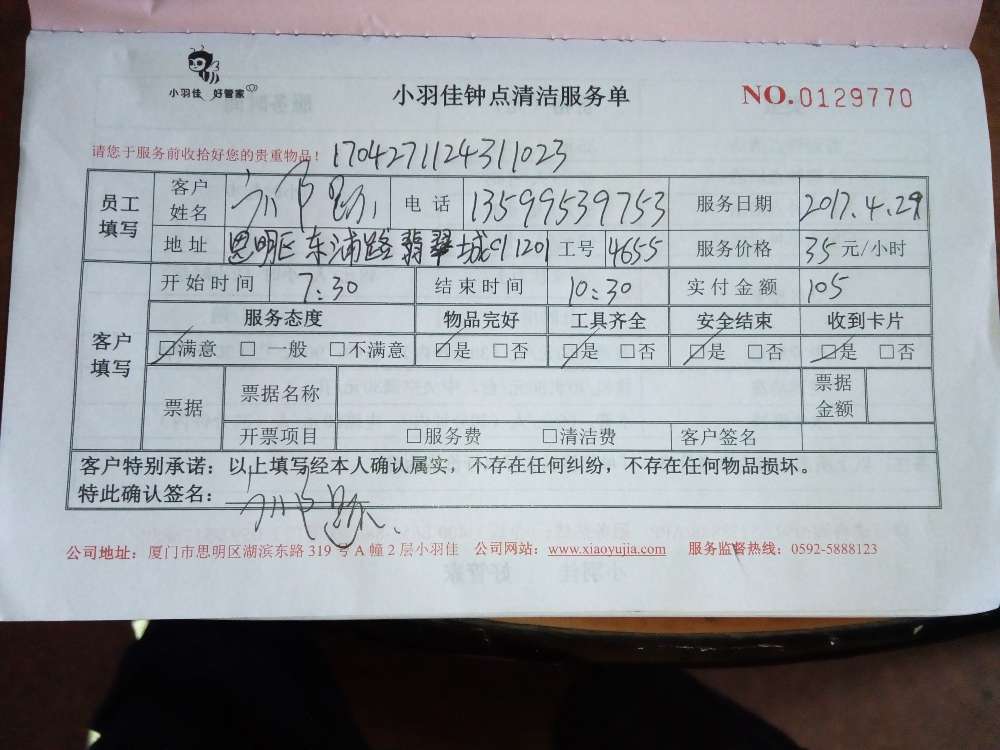 小羽佳 好管家
小羽佳钟点清洁服务单
NO.0129770
请您于服务前收拾好您的贵重物品！ 1704271124311023
员工填写 客户姓名 电话 13599539753 服务日期 2017.4.29
地址 思明区东浦路翡翠城 1201 工号 4655 服务价格 35 元/小时
客户填写 开始时间 7:30 结束时间 10:30 实付金额 105
服务态度 物品完好 工具齐全 安全结束 收到卡片
□满意 □ 一般 □不满意 □是 □否 □是 □否 □是 □否 □是 □否
票据 票据名称 票据金额
开票项目 □服务费 □清洁费 客户签名
客户特别承诺：以上填写经本人确认属实，不存在任何纠纷，不存在任何物品损坏。
特此确认签名：
公司地址：厦门市思明区湖滨东路 319 号 A 幢 2 层小羽佳 公司网站：www.xiaoyujia.com 服务监督热线：0592-5888123